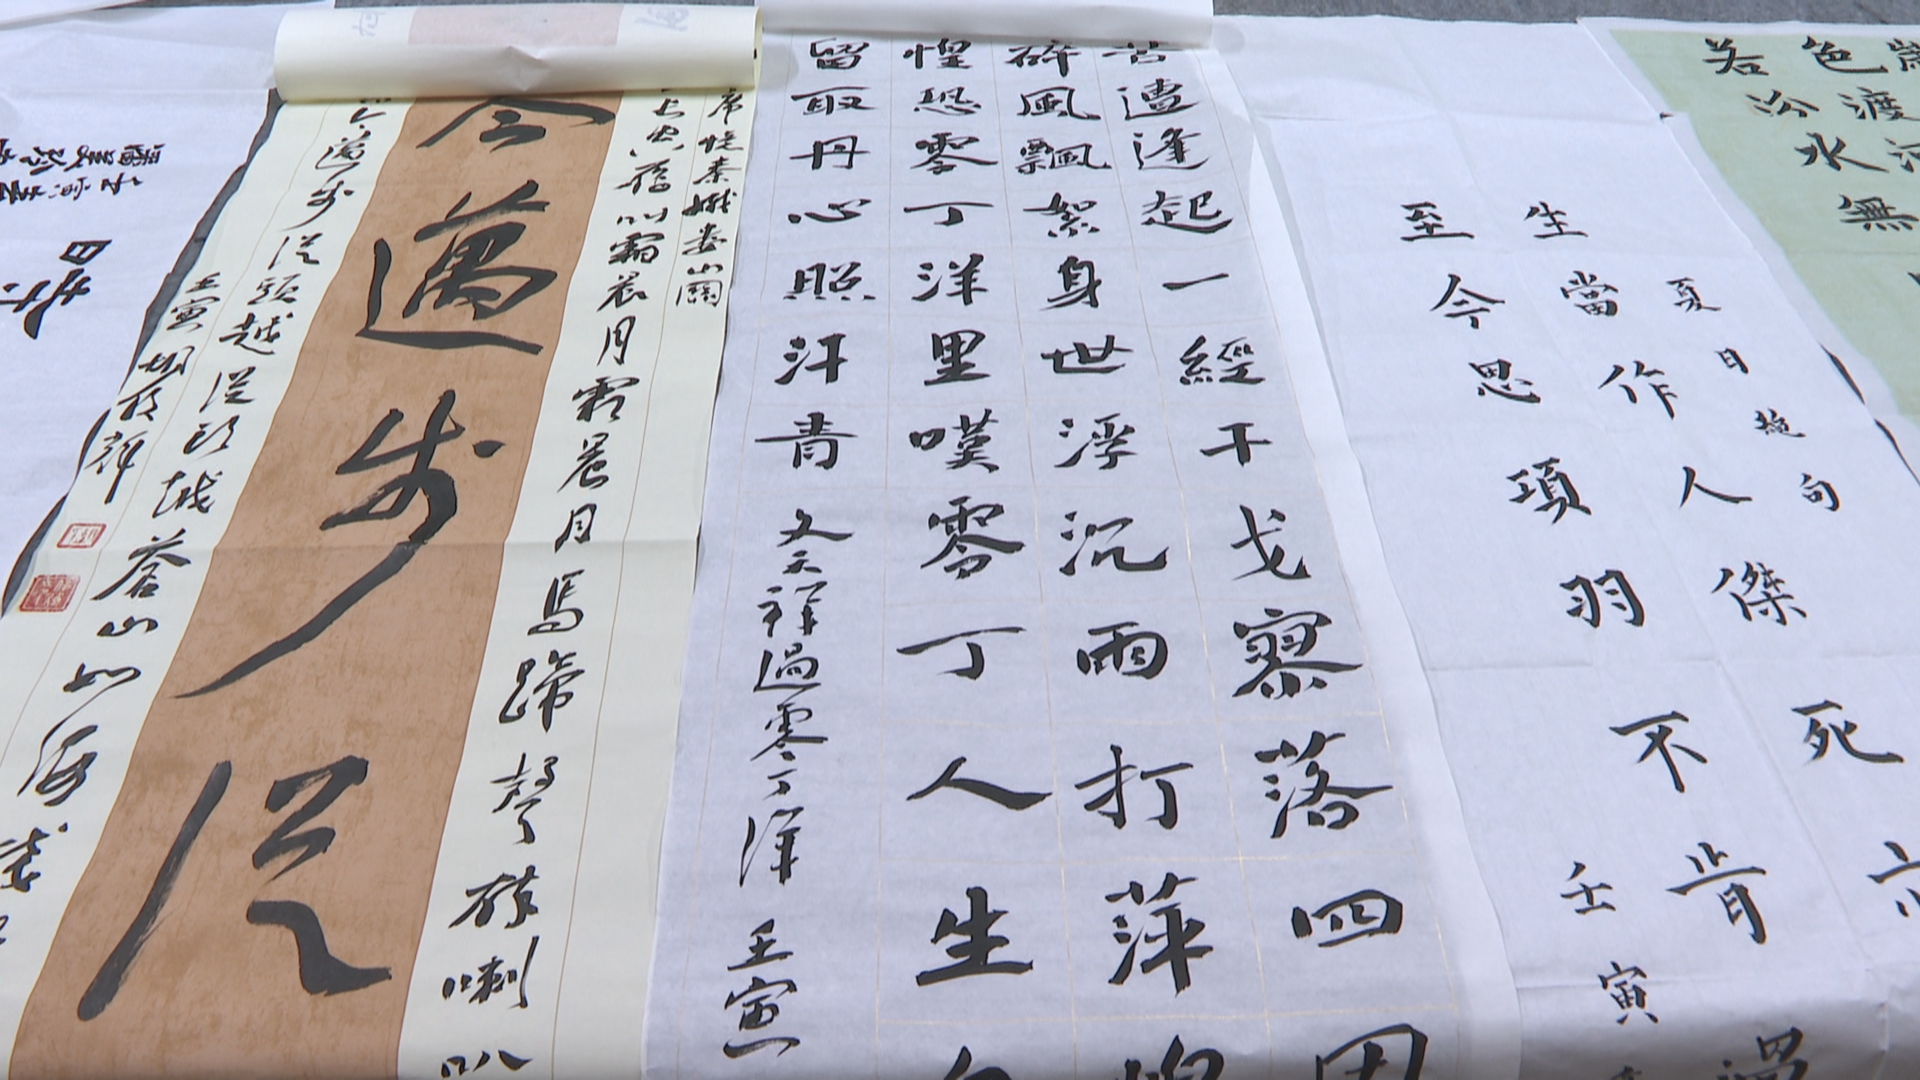 色渡河
若汾水無
夏日絕句
生當作人傑死
至今思項羽不肯過
壬寅
苦遭逢起一經干戈寥落四周
碎風飄絮身世浮沉雨打萍惶
惶恐零丁洋里嘆零丁人生自
留取丹心照汗青
文天祥過零丁洋 壬寅
席憶秦娥婁山關
長空雁叫霜晨月霜晨月馬蹄聲碎喇叭
今邁步從
今邁步從頭越從頭越蒼山如海殘
壬寅